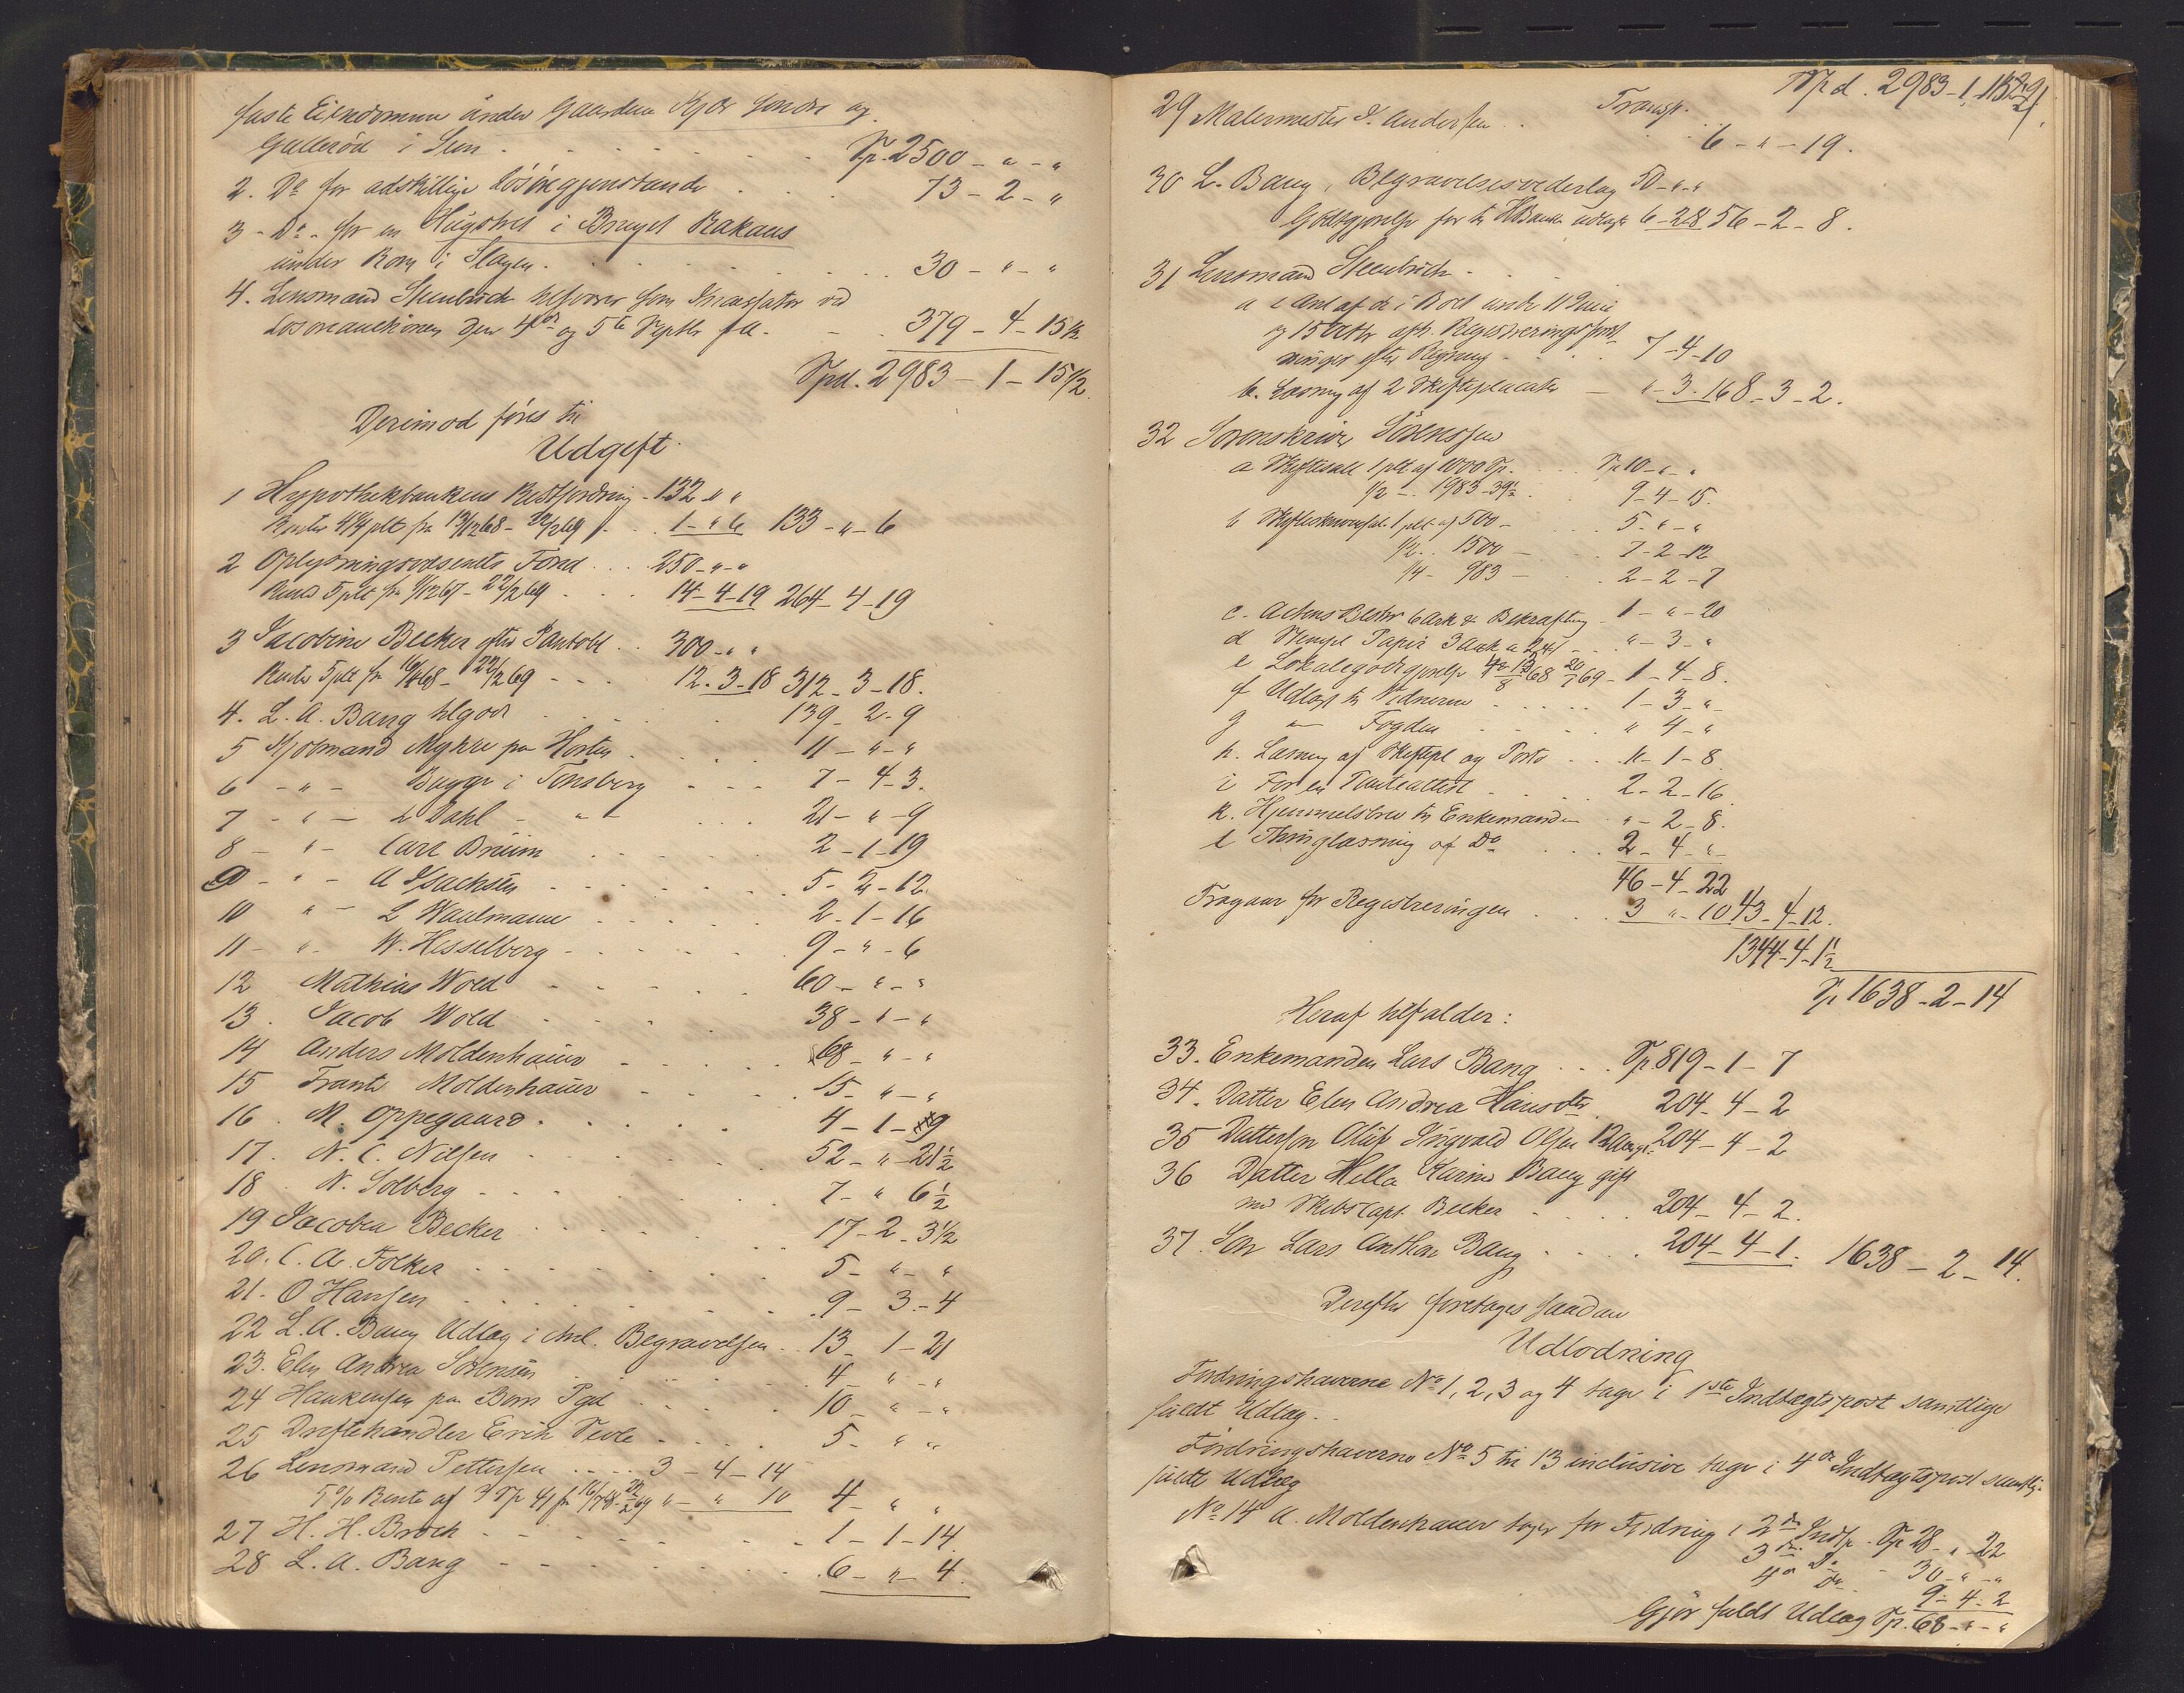 faste Eiendomme under Gaarden Kjær søndre og
Gallerød i Sem . . . . . . Sp. 2500 - " - "
2. Do for adskillige Løsøregjenstande . . . 73 - 2 - "
3 - Do - for en Hugstret i Bruget Bakaas
under Rom i Slagen . . . . . 30 - " - "
4. Lensmand Steenbuch tilsvarer som Incassator ved
Løsøreauctionen den 4de og 5te Septbr f.A. - 379 - 4 - 15½
Spd. 2983 - 1 - 15½
Derimod føres til
Udgift
1 Hypothekbankens Restfordring - 132 " "
Renter 4¼ pct fra 13/12 68 - 22/2 69 . . 1 - " 6 133 - " - 6
2 Oplysningsvæsenets Fond . . . 250 - " - "
Rente 5 pct fra 11/12 67 - 22/2 69 . . . 14 - 4 - 19 264 - 4 - 19
3 Jacobine Becker efter Pantobl . . 300 - " "
Rente 5 pct fra 16/4 68 - 22/2 69 - - - 12 - 3 - 18 312 - 3 - 18.
4. L. A. Bang tilgode . . . 139 - 2 - 9
5 Kjøbmand Mykre paa Horten . . . 11 - " - "
6 - " - Bugge i Tønsberg - - - 7 - 4 - 3.
7 - " - L Dahl - " - . . . 21 - " - 9
8 - " - Carl Bruun . . . . . 2 - 1 - 19
9 - " - A Isachsen . . . . . 5 - 2 - 12.
10 " - L Waulmann . . . . . 2 - 1 - 16
11 - " - W. Hesselberg - . . . . 9 - " - 6
12 Mathias Wold . . . . . 60 - " - "
13. Jacob Wold . . . . . 38 - " - "
14 Anders Moldenhauer . . . . 68 - " - "
15 Frants Moldenhauer . . . . 15 - " - "
16. M. Oppegaard . . . . . 4 - 1 - 9
17. N. C. Nilsen . . . . . 52 - " - 21½
18. N. Solberg . . . . . 7 - " 6½
19 Jacobea Becker . . . . . 17 - 2 - 3½
20. C. A. Folker . . . . . 5 - " - "
21. O Hansen . . . . . 9 - 3 - 4
22 L. A. Bang Udlæg i Anl. Begravelsen . . 13 - 1 - 21
23. Elen Andrea Sørensen . . . . 4 - " - "
24 Haakensen paa Bern Pgd . . . . 10 - " - "
25 Driftehandler Erik Tveve . . . . 5 - " - "
26 Lensmand Pettersen . . . . 3 - 4 - 14
5% Rente af 3 Sp 41 fra 16/7 68 - 22/2 69 " - " 10 4 - " "
27 H. H. Broch - - - - 1 - 1 - 14
28 L. A. Bang - - - - 6 - " - 4.
Transp. Spd. 2983 - 1 - 15½
29 Malermester J. Andersen . . 6 - " - 19.
30 L. Bang, Begravelsesvederlag 50 - " - "
Godtgjørelse for til HBank udlagt 6 - 2 8 56 - 2 - 8.
31 Lensmand Steenbuch - . . .
a i Anl af de i Boet under 11 Junii
og 15 Octbr afh. Registreringsforret
ninger efter Regning - . . . 7 - 4 - 10
b. Læsning af 2 Skifteplacater - " - 3 - 16 8 - 3 - 2.
32 Sorenskriver Sørenssen
a Skiftesall 1 pct af 1000 Sp. . . Sp 10 - " - "
1/2 - . 1983 - 39½ . . 9 - 4 - 15.
b Skifteskriversal. 1 pct af 500 - . . . 5 - " - "
1/2 . . 1500 - . . 7 - 2 - 12
1/4 - 983 - . . 2 - 2 - 7
c. Actens Beskr 6 Ark & Bekræftning - 1 - " - 20
d Stemplt Papir 3 Ark a 24 s - . . " - 3 - "
e Lokalegodtgjørelse 4/8 - 13/8 68 20/7 69 - 1 - 4 - 8.
f Udlagt til Vidnerne . . . . . 1 - 3 - "
g " Fogden . . . . " 4 - "
h. Læsning af Skiftepl og Porto . . . 11 - 1 - 8
i For en Panteattest . . . . 2 - 2 - 16
k. Hjemmelsbrev til Enkemanden " - 2 - 8.
l Thinglæsning af Do . . . 2 - 4 - "
46 - 4 - 22
Fragaar for Registreringen . . . . 3 " - 10 43 - 4 - 12.
1344 - 4 - 1½
Sp 1638 - 2 - 14
Heraf tilfalder:
33. Enkemanden Lars Bang . . . Sp 819 - 1 - 7
34. Datter Elen Andrea Hansdtr 204 - 4 - 2
35 Dattersøn Oluf Ingvald Olsen 12 Aar gl. 204 - 4 - 2
36 Datter Hella Karine Bang gift
med Skibscapt. Becker - . . . 204 - 4 - 2.
37. Søn Lars Anthon Bang . . . . 204 - 4 - 1. 1638 - 2 - 14.
Derefter foretages saadan
Udlodning
Fordringshaverne No 1, 2, 3 og 4 tage i 1ste Indtægtspost samtlige
fuldt Udlæg . .
Fordringshaverne No 5 til 13 inclusive tage i 4de Indtægtspost samtlige
fuldt Udlæg
No 14 A. Moldenhauer tager for Fordring i 2den Indtp. Sp 28 - " - 22
3die Do - 30 - " - "
4de Do 9 - 4 - 2
Gjør fuldt Udlæg Sp. 68 - " - "